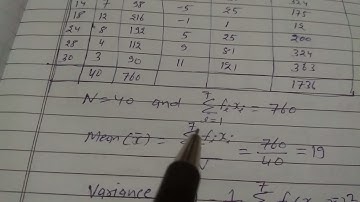 14 7 98 -5 25 175
18 12 216 -1 1 12
24 8 192 5 25 200
28 4 112 9 81 324
30 3 90 11 121 363
40 760 1736
N=40 and Σ fixi = 760
Mean (x̄) = Σ fixi = 760/40 = 19
Variance